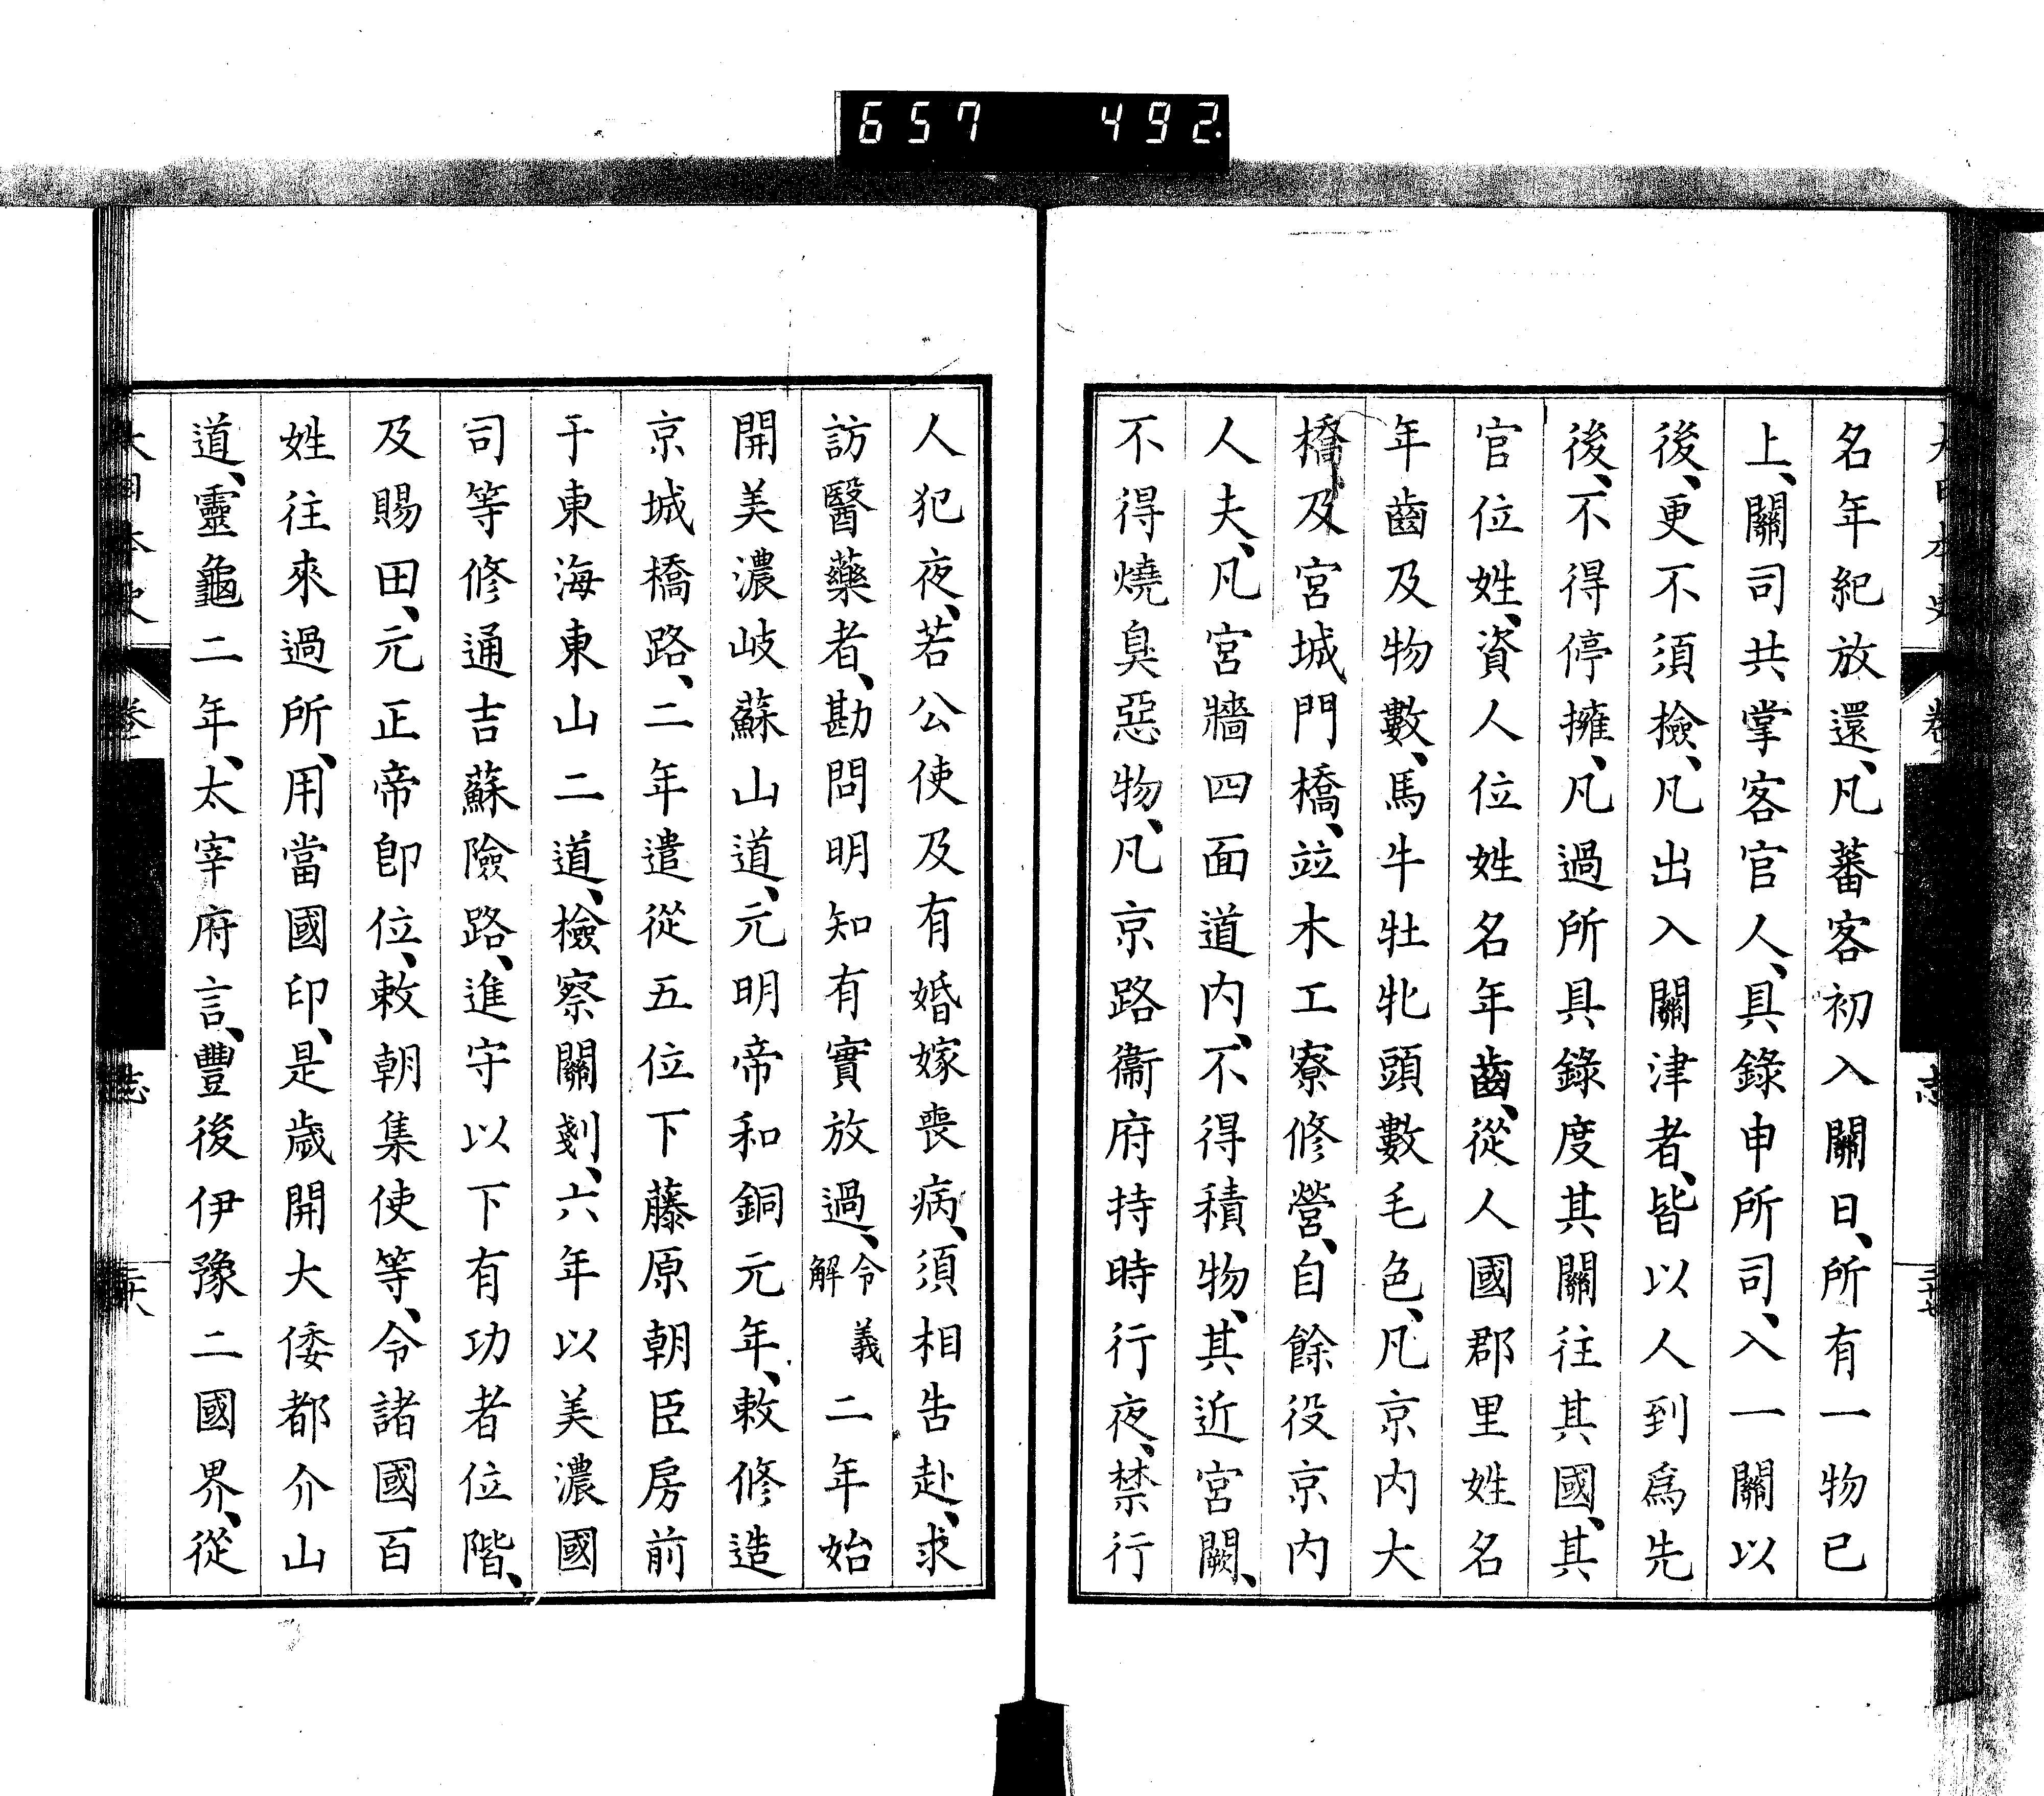 657 492
名年紀放還、凡蕃客初入關日、所有一物已
上、關司共掌客官人、具錄申所司、入一關以
後、更不須檢、凡出入關津者、皆以人到爲先
後、不得停擁、凡過所具錄度其關往其國、其
官位姓、資人位姓名年齒、從人國郡里姓名
年齒及物數、馬牛牡牝頭數毛色、凡京内大
橋、及宮城門橋、竝木工寮修營、自餘役京内
人夫、凡宮牆四面道内、不得積物、其近宮闕、
不得燒臭惡物、凡京路衞府持時行夜、禁行
人犯夜、若公使及有婚嫁喪病、須相告赴、求
訪醫藥者、勘問明知有實放過、令義解二年始
開美濃岐蘇山道、元明帝和銅元年、敕修造
京城橋路、二年遣從五位下藤原朝臣房前
于東海東山二道、檢察關剗、六年以美濃國
司等修通吉蘇險路、進守以下有功者位階、
及賜田、元正帝卽位、敕朝集使等、令諸國百
姓往來過所、用當國印、是歲開大倭都介山
道、靈龜二年、太宰府言、豐後伊豫二國界、從
卷
志